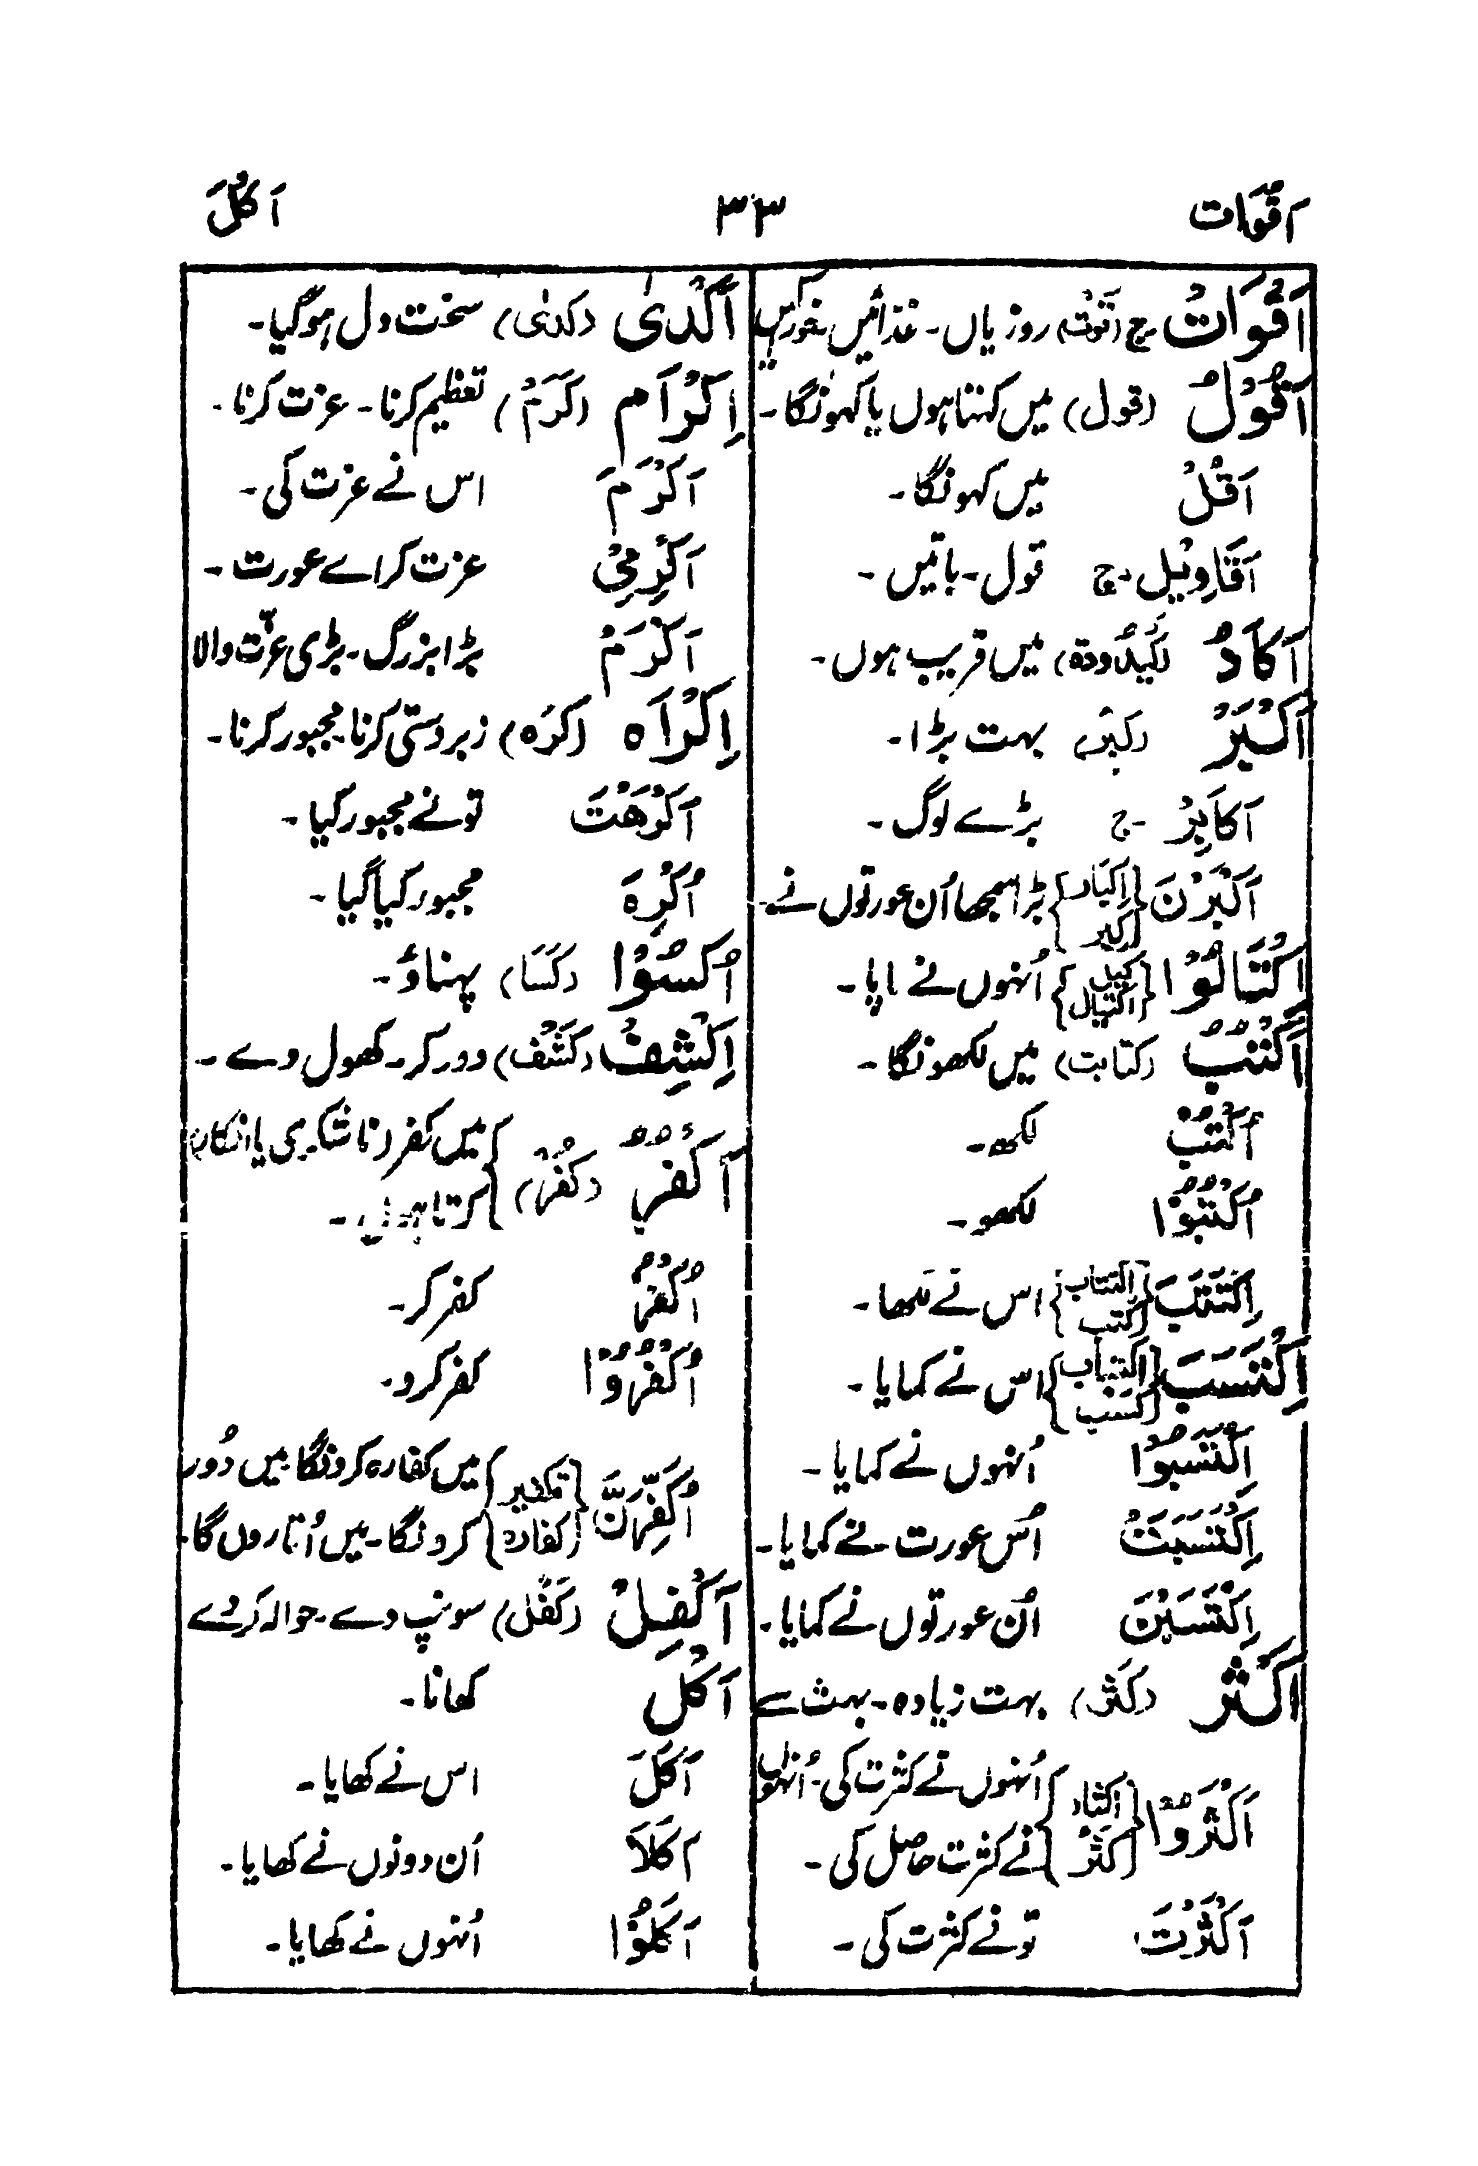 اَقْوَات ۳۳ اَكُلَ
اَقْوَاتُ ۔ج (قُوْت) روزیاں۔ غذائیں خوراکیں
اَقُوْلُ (قول) میں کہتا ہوں یا کہونگا۔
اَقُلْ میں کہونگا۔
اَقَاوِیْل۔ج قول۔ باتیں۔
اَكَادُ (كَیْدُودة) میں قریب ہوں۔
اَكْبَرُ (كِبْر) بہت بڑا۔
اَكَابِرُ ۔ج بڑے لوگ۔
اَكْبَرْنَ {اِكْبَار كبر} بڑا سمجھا اُن عورتوں نے۔
اِكْتَالُوْا {كَیل اكتیال} اُنہوں نے ناپا۔
اَكْتُبُ (كتابت) میں لکھونگا۔
اُكْتُبْ لکھ۔
اُكْتُبُوْا لکھو۔
اِكْتَتَبَ {اِكتتاب كتب} اس نے لکھا۔
اِكْتَسَبَ {اِكتساب كسب} اس نے کمایا۔
اِكْتَسَبُوْا اُنہوں نے کمایا۔
اِكْتَسَبَتْ اُس عورت نے کمایا۔
اِكْتَسَبْنَ اُن عورتوں نے کمایا۔
اَكْثَر (كَثْر) بہت زیادہ۔ بہت سے
اَكْثَرُوْا {اِكثار كَثْر} اُنہوں نے کثرت کی۔ اُنہوں
نے کثرت حاصل کی۔
اَكْثَرْتَ تو نے کثرت کی۔
اَكْدٰی (كدٰی) سخت دل ہو گیا۔
اِكْرَام (كَرَمُ) تعظیم کرنا۔ عزت کرنا۔
اَكْرَمَ اس نے عزت کی۔
اَكْرِمِیْ عزت کر اے عورت۔
اَكْرَمُ بڑا بزرگ۔ بڑی عزّت والا
اِكْرَاه (كَرَه) زبردستی کرنا۔ مجبور کرنا۔
اَكْرَهْتَ تو نے مجبور کیا۔
اُكْرِهَ مجبور کیا گیا۔
اُكْسُوْا (كَسَا) پہناؤ۔
اِكْشِفْ (كَشْف) دور کر۔ کھول دے۔
اَكْفُرُ (كُفْر) {میں کفر (ناشکری یا انکار)
کرتا ہوں۔
اُكْفُرْ کفر کر۔
اُكْفُرُوْا کفر کرو۔
اُكَفِّرَنَّ {تكفیر كفاره} میں کفارہ کرونگا میں دُور
کرونگا۔ میں اُتاروں گا۔
اَكْفِلْ (كَفْل) سونپ دے۔ حوالہ کر دے
اَكْل کھانا۔
اَكَلَ اس نے کھایا۔
اَكَلَا اُن دونوں نے کھایا۔
اَكَلُوْا اُنہوں نے کھایا۔